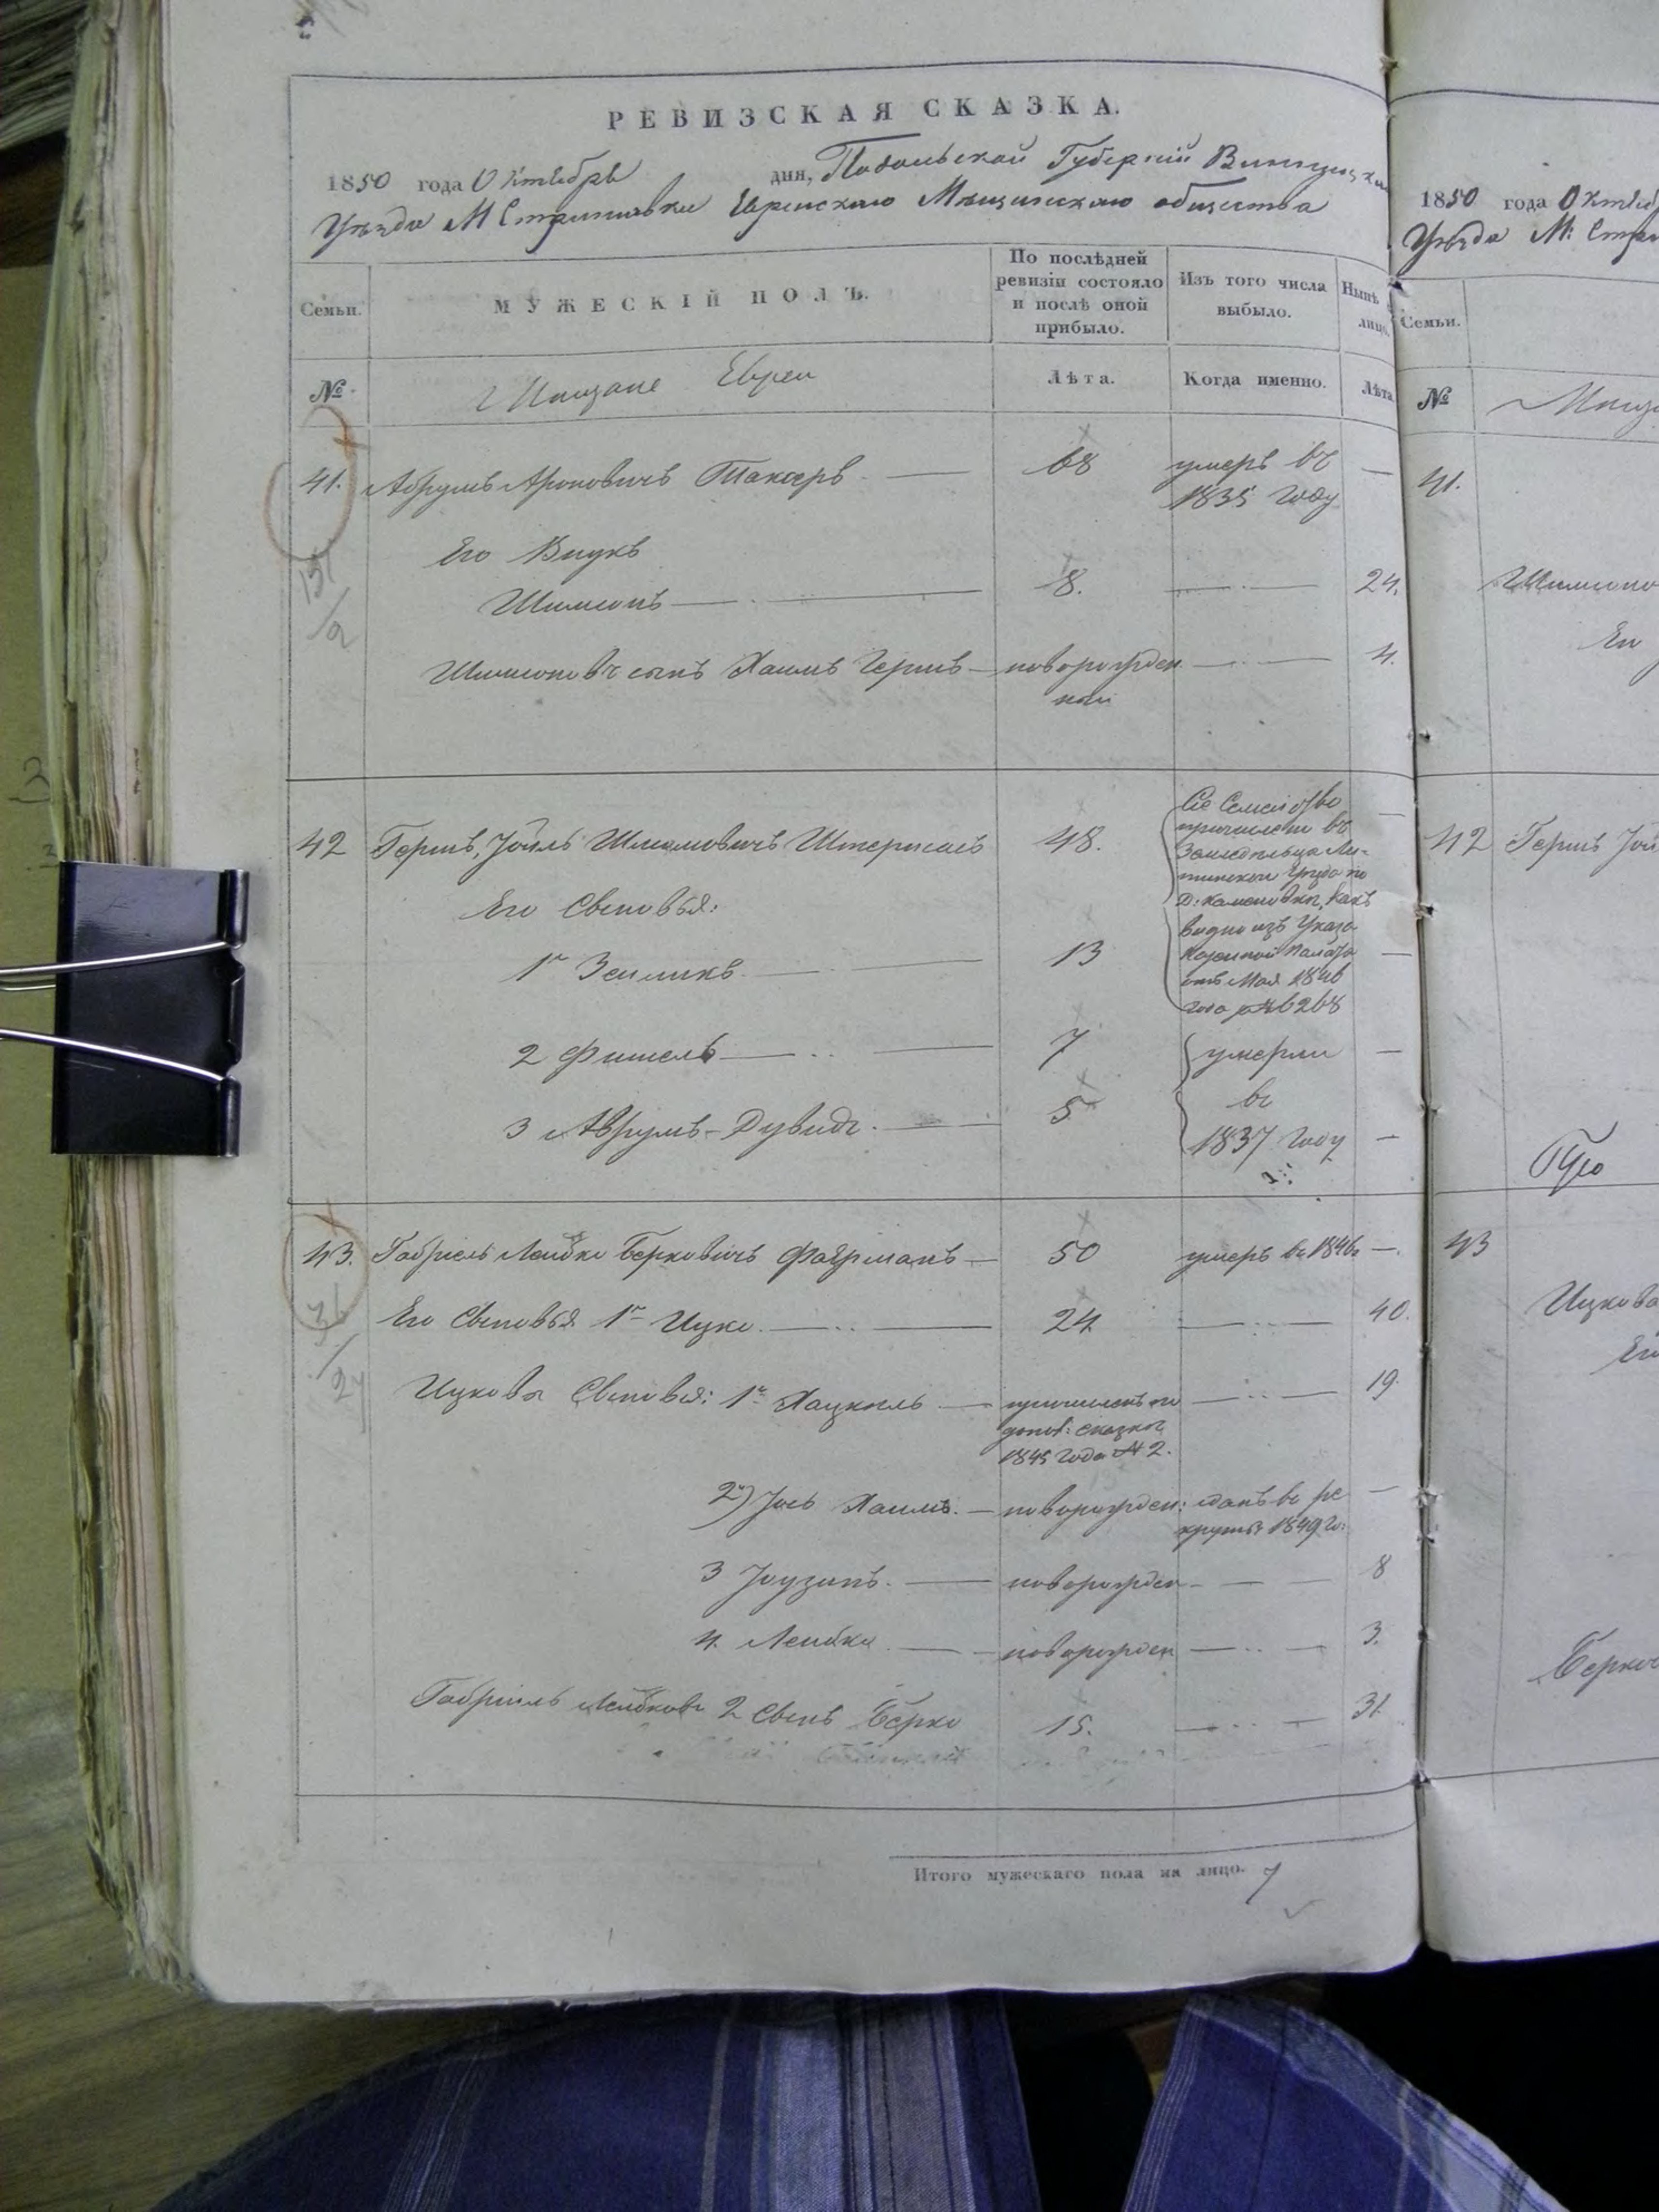 РЕВИЗСКАЯ СКАЗКА.
1850 года Октября дня, Подольской Губерніи Винницка
Уѣзда М Стрижавки Еврейскаго Мѣщанскаго общества
Семьи.
МУЖЕСКІЙ ПОЛЪ.
По послѣдней ревизіи состояло и послѣ оной прибыло.
Изъ того числа выбыло.
Нынѣ лицо
№
Мѣщане Евреи
Лѣта.
Когда именно.
Лѣта
41. Абрумъ Ароновичъ 68 умеръ въ —
1835 году
Его Внукъ
Шимонъ — 8. — 24.
Шимоновъ сынъ Хаимъ Гершъ — новорожден — 4.
ной
42 Гершъ, Іойль Шлемовичъ 48. Сіе Семейство
причислено въ
Его Сыновья:
1й Зейликъ — 13
видно изъ Указа
Казенной Палаты
отъ Мая 1846
года за № 6268
2 Фишель — 7 умерли —
3 Аврумъ-Дувидъ. — 5 въ
1837 году —
43. Габріель Лейбко Берковичъ Фаерманъ — 50 умеръ въ 1846 —.
Его Сыновья 1й Ицко. — 24 — 40.
Ицкова Сыновья: 1й Хацкель — причисленъ по — 19.
допол: сказкѣ
1845 года № 2.
2й) Іось Хаимъ. — новорожден: сданъ въ ре —
круты 1849 го:
3 — новорожден — 8
4. Лейбка — новорожден — 3.
Габріель Лейбковъ 2 Сынъ Берко 15. — 31
Итого мужескаго пола на лицо. 7
1850 года Октяб
Уѣзда М: Стри
Семьи.
№ Мѣща
41.
Шимоно
Ег
42 Гершъ Іой
43
Ицкова
Ег
Берков